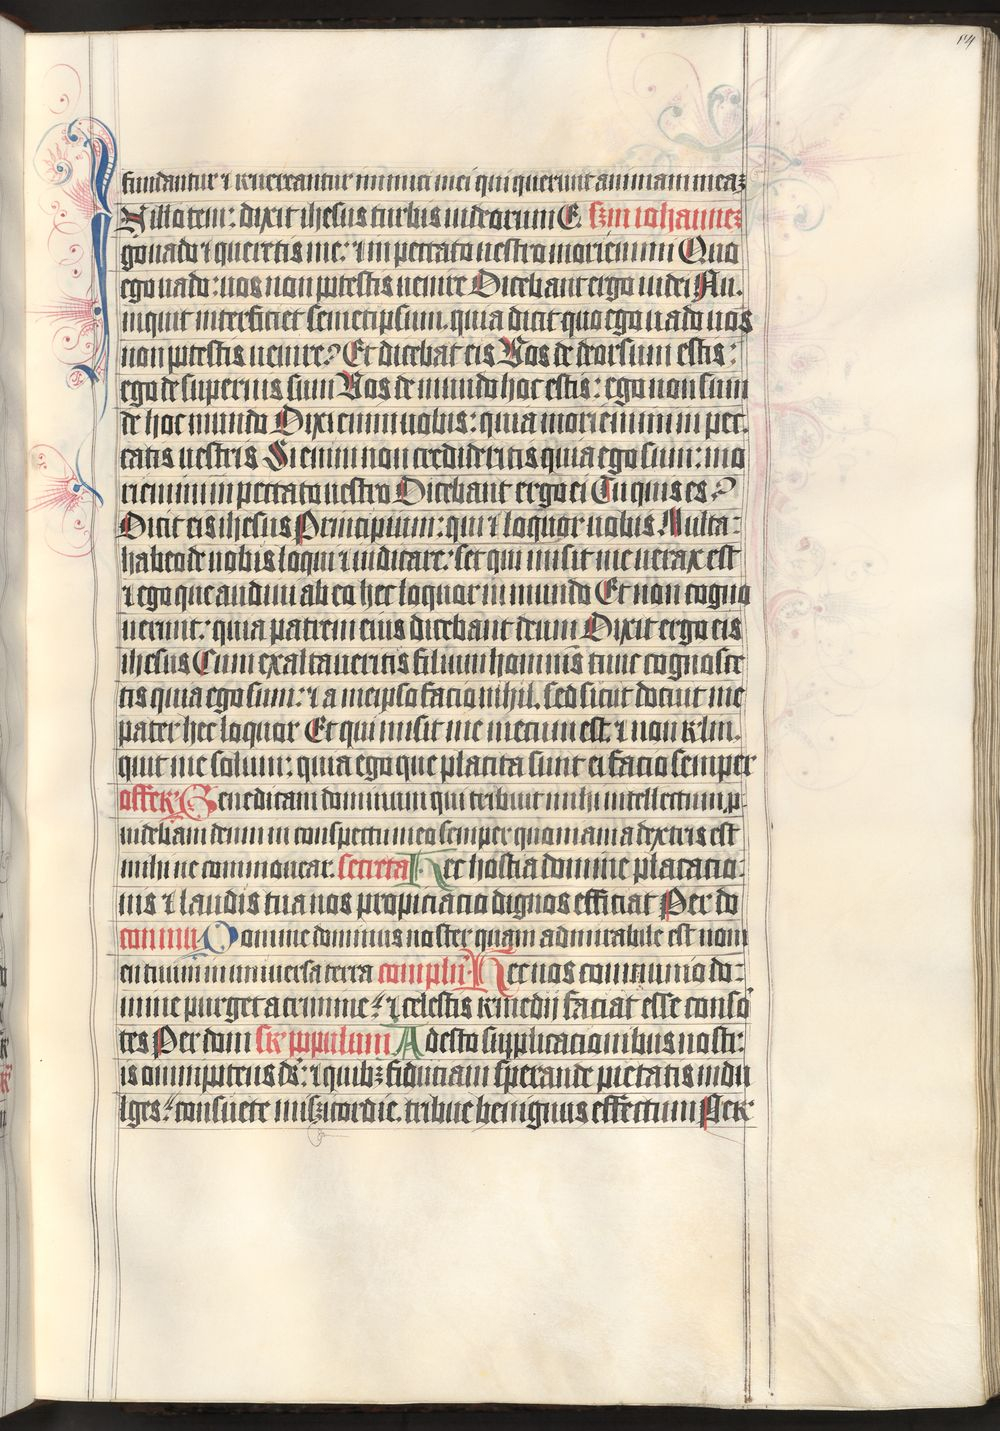 fundantur ⁊ reuereantur inimici mei qui querunt animam meaꝫ
N illo tem: dixit ihesus turbis iudeorum E. scdm iohanneꝫ
go uado ⁊ queretis me: ⁊ in peccato uestro moriemini Quo
ego uado: uos non potestis uenire Dicebant ergo iudei Nu.
inquit interficiet semetipsum. quia dicit quo ego uado uos
non potestis uenire? Et dicebat eis Vos de deorsum estis:
ego de supernis sum Vos de mundo hoc estis: ego non sum
de hoc mundo Dixi enim uobis: quia moriemini in pec.
catis uestris Si enim non credideritis quia ego sum: mo
riemini in peccato uestro Dicebant ergo ei Tu quis es?
Dicit eis ihesus Principium: qui ⁊ loquor uobis Multa:
habeo de uobis loqui ⁊ iudicare: set qui misit me uerax est
⁊ ego que audiui ab eo hec loquor in mundo Et non cogno
uerunt: quia patrem eius dicebant deum Dixit ergo eis
ihesus Cum exaltaueritis filium hominis tunc cognosce
tis quia ego sum: ⁊ a meipso facio nihil. sed sicut docuit me
pater hec loquor Et qui misit me mecum est. ⁊ non relin.
quit me solum: quia ego que placita sunt ei facio semper
offer Benedicam dominum qui tribuit mihi intellectum. p̱
uidebam deum in conspectu meo semper quoniam a dextris est
mihi ne commouear. secreta Hec hostia domine placacio:
nis ⁊ laudis tua nos propiciacio dignos efficiat Per do
commu Domine dominus noster quam admirabile est nom
en tuum in uniuersa terra complu Hec nos communio do:
mine purget a crimine: ⁊ celestis remedii faciat esse conso
tes Per dom sr populum Adesto supplicacionibus nostr:
is omnipotens ds: ⁊ quibꝫ fiduciam sperande pietatis indu
lges: consuete misericordie. tribue benignus effectum Per